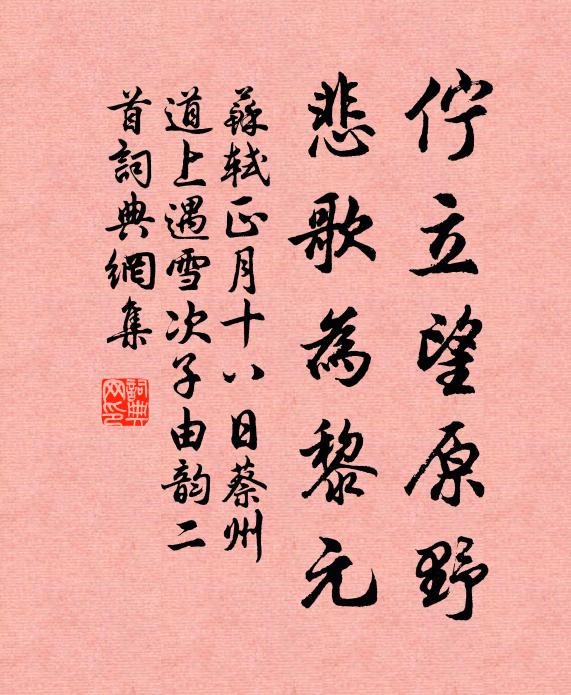 佇立望原野
悲歌為黎元
蘇軾正月十八日蔡州
道上遇雪次子由韵二
首詞典網集
詞典网印